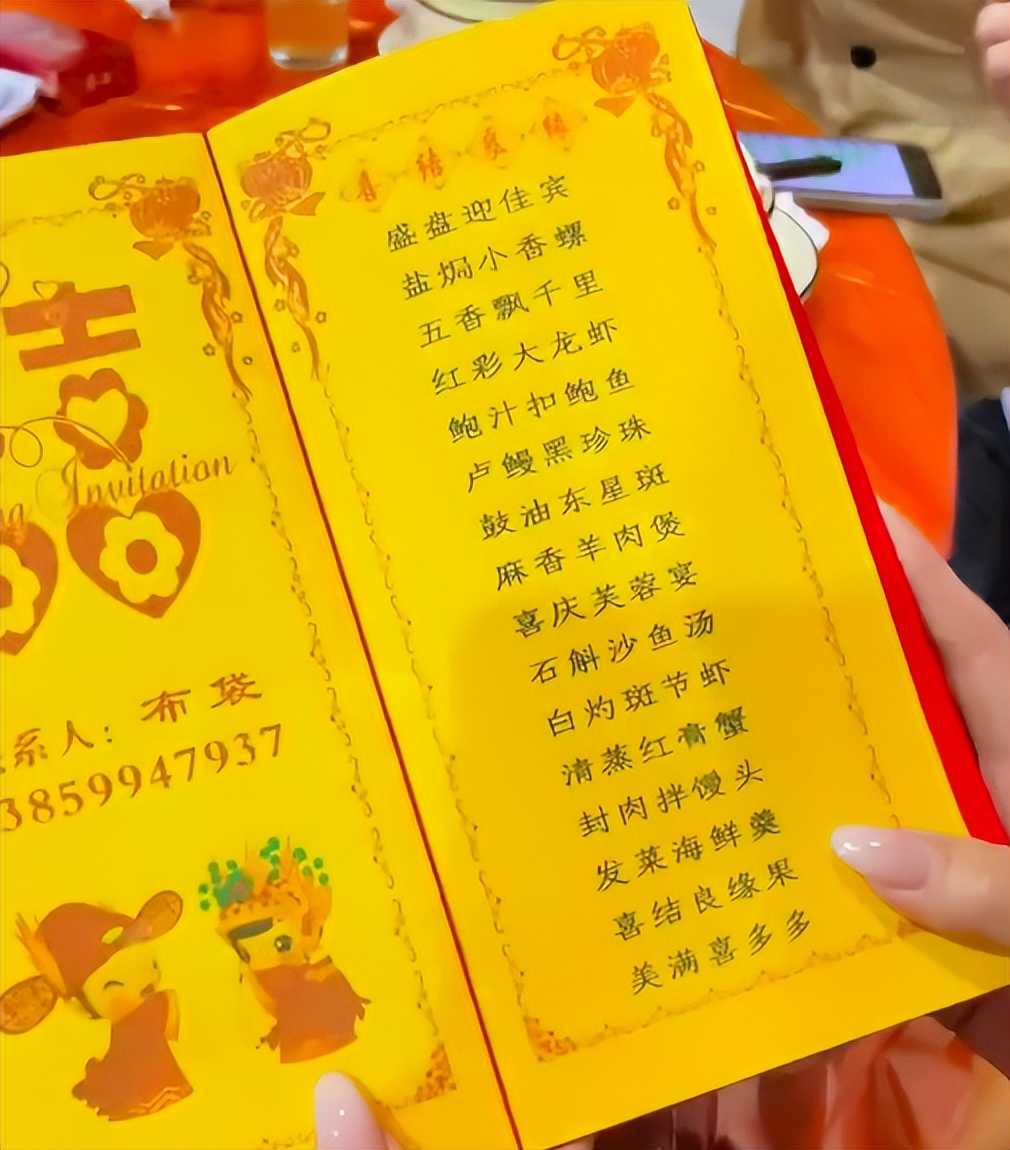 吉
Invitation
系人：布袋
3859947937
喜结良缘
盛盘迎佳宾
盐焗小香螺
五香飘千里
红彩大龙虾
鲍汁扣鲍鱼
卢鳗黑珍珠
鼓油东星斑
麻香羊肉煲
喜庆芙蓉宴
石斛沙鱼汤
白灼斑节虾
清蒸红膏蟹
封肉拌馒头
发菜海鲜羹
喜结良缘果
美满喜多多